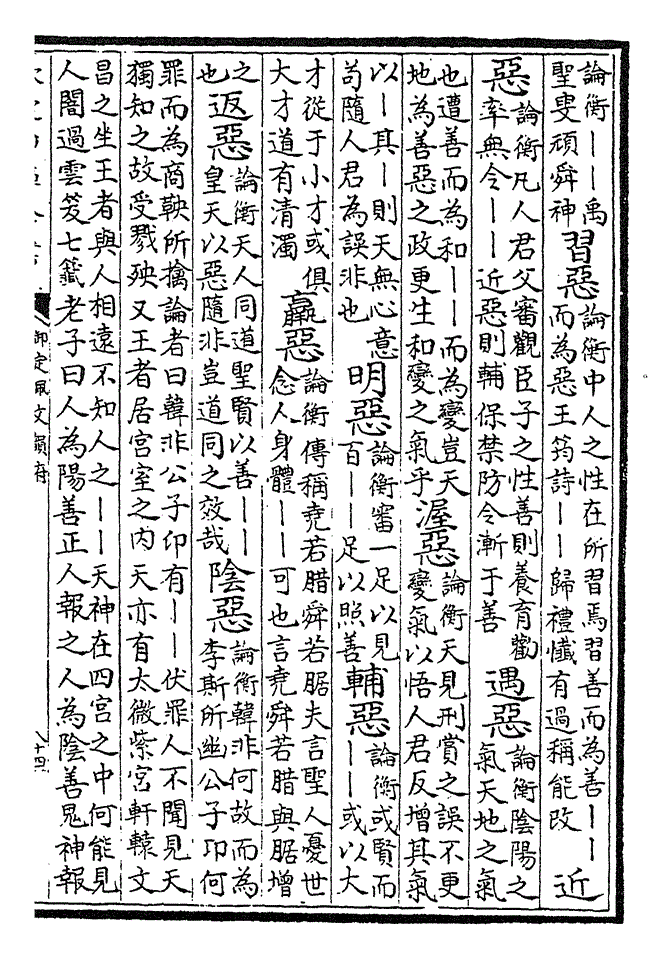 論衡丨丨禹
聖叟頑舜神
習惡
論衡中人之性在所習焉習善而為善丨丨
而為惡王筠詩丨丨歸禮懺有過稱能改
近
惡
論衡凡人君父審觀臣子之性善則養育勸
率無令丨丨近惡則輔保禁防令漸于善
遇惡
論衡陰陽之
氣天地之氣
也遭善而為和丨丨而為變豈天
地為善惡之政更生和變之氣乎
渥惡
論衡天見刑賞之誤不更
變氣以悟人君反增其氣
以丨其丨則天無心意
苟隨人君為誤非也
明惡
論衡審一足以見
百丨丨足以照善
輔惡
論衡或賢而
丨丨或以大
才從于小才或俱
大才道有清濁
羸惡
論衡傳稱堯若腊舜若腒夫言聖人憂世
念人身體丨丨可也言堯舜若腊與腒增
之
也
返惡
論衡天人同道聖賢以善丨丨
皇天以惡隨非豈道同之效哉
陰惡
論衡韓非何故而為
李斯所幽公子卬何
罪而為商鞅所擒論者曰韓非公子卬有丨丨伏罪人不聞見天
獨知之故受戮殃又王者居宮室之內天亦有太微紫宮軒轅文
昌之坐王者與人相遠不知人之丨丨天神在四宮之中何能見
人闇過雲笈七籤老子曰人為陽善正人報之人為陰善鬼神報
御定佩文韻府
八十四